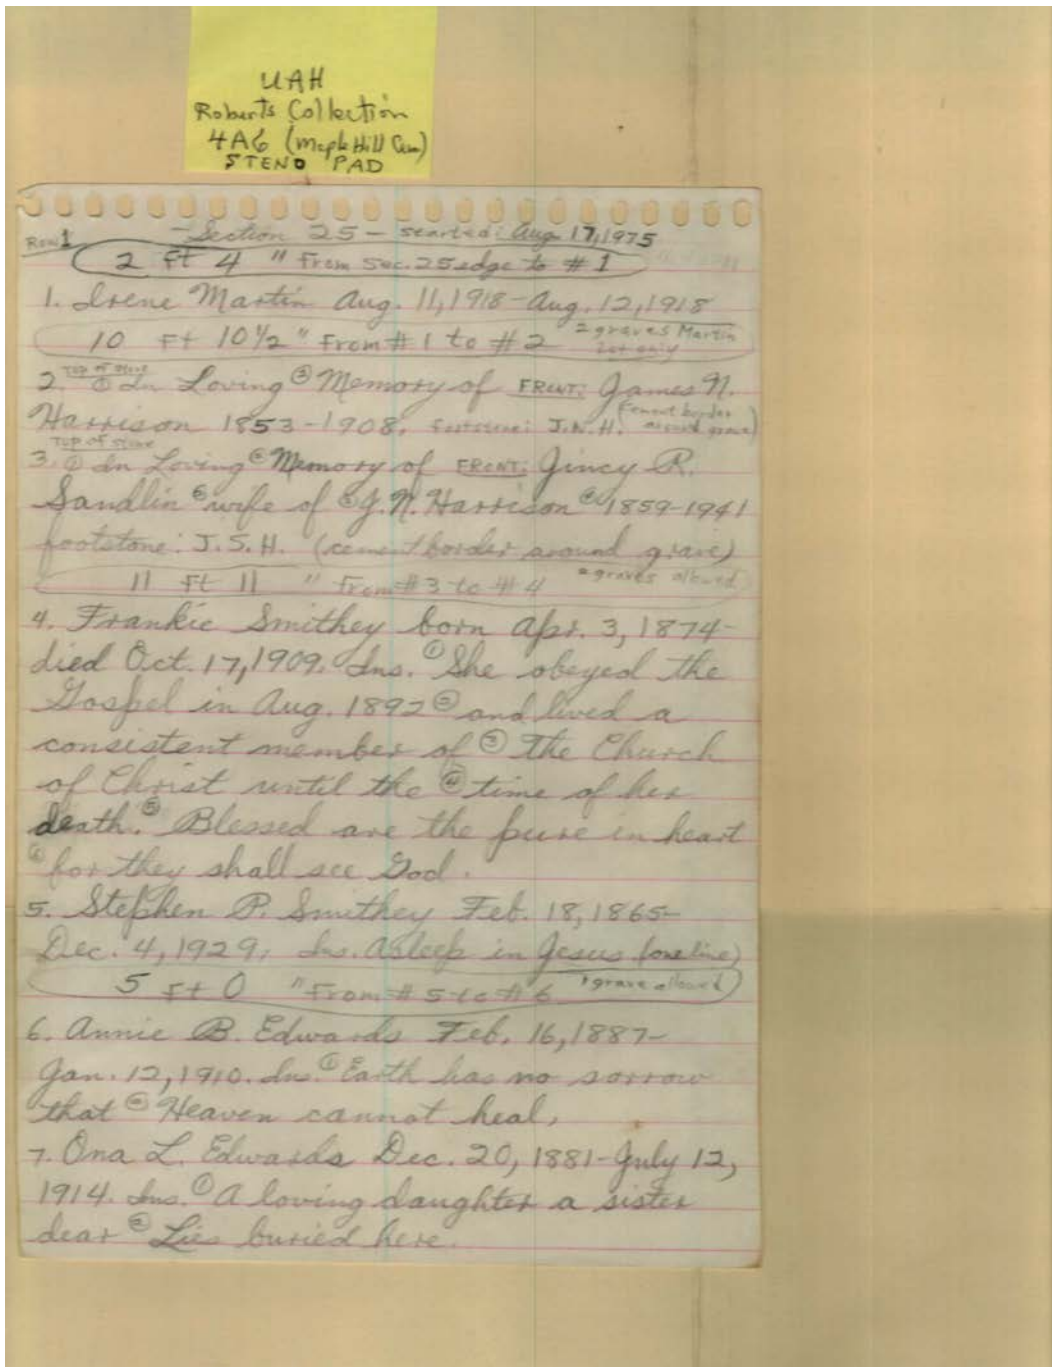 UAH
Roberts Collection
4A6 (Maple Hill Cem)
STENO PAD
Row 1 - Section 25 - started: Aug 17, 1975
2 ft 4 " From Sec. 25 edge to # 1
1. Irene Martin Aug. 11, 1918 - Aug. 12, 1918
10 Ft 10 1/2 " From # 1 to # 2 2 graves Martin
Lot only
2. Top of stone ① In Loving ② Memory of FRONT: James N.
Harrison 1853-1908. footstone: J.N.H. (cement border around grave)
Top of stone
3. ① In Loving ② Memory of FRONT: Jincy R.
Sandlin ② wife of ③ J. N. Harrison ④ 1859-1941
footstone: J.S.H. (cement border around grave)
11 ft 11 " From # 3 to # 4 2 graves allowed
4. Frankie Smithey born Apr. 3, 1874-
died Oct. 17, 1909. Ins. ① She obeyed the
Gospel in Aug. 1892 ② and lived a
consistent member of ③ The Church
of Christ until the ④ time of her
death. ⑤ Blessed are the pure in heart
⑥ for they shall see God.
5. Stephen P. Smithey Feb. 18, 1865-
Dec. 4, 1929. Ins. Asleep in Jesus (one line)
5 ft 0 " From # 5 to # 6 1 grave allowed
6. Annie B. Edwards Feb. 16, 1887-
Jan. 12, 1910. Ins. ① Earth has no sorrow
that ② Heaven cannot heal.
7. Ona L. Edwards Dec. 20, 1881-July 12,
1914. Ins. ① A loving daughter a sister
dear ② Lies buried here.